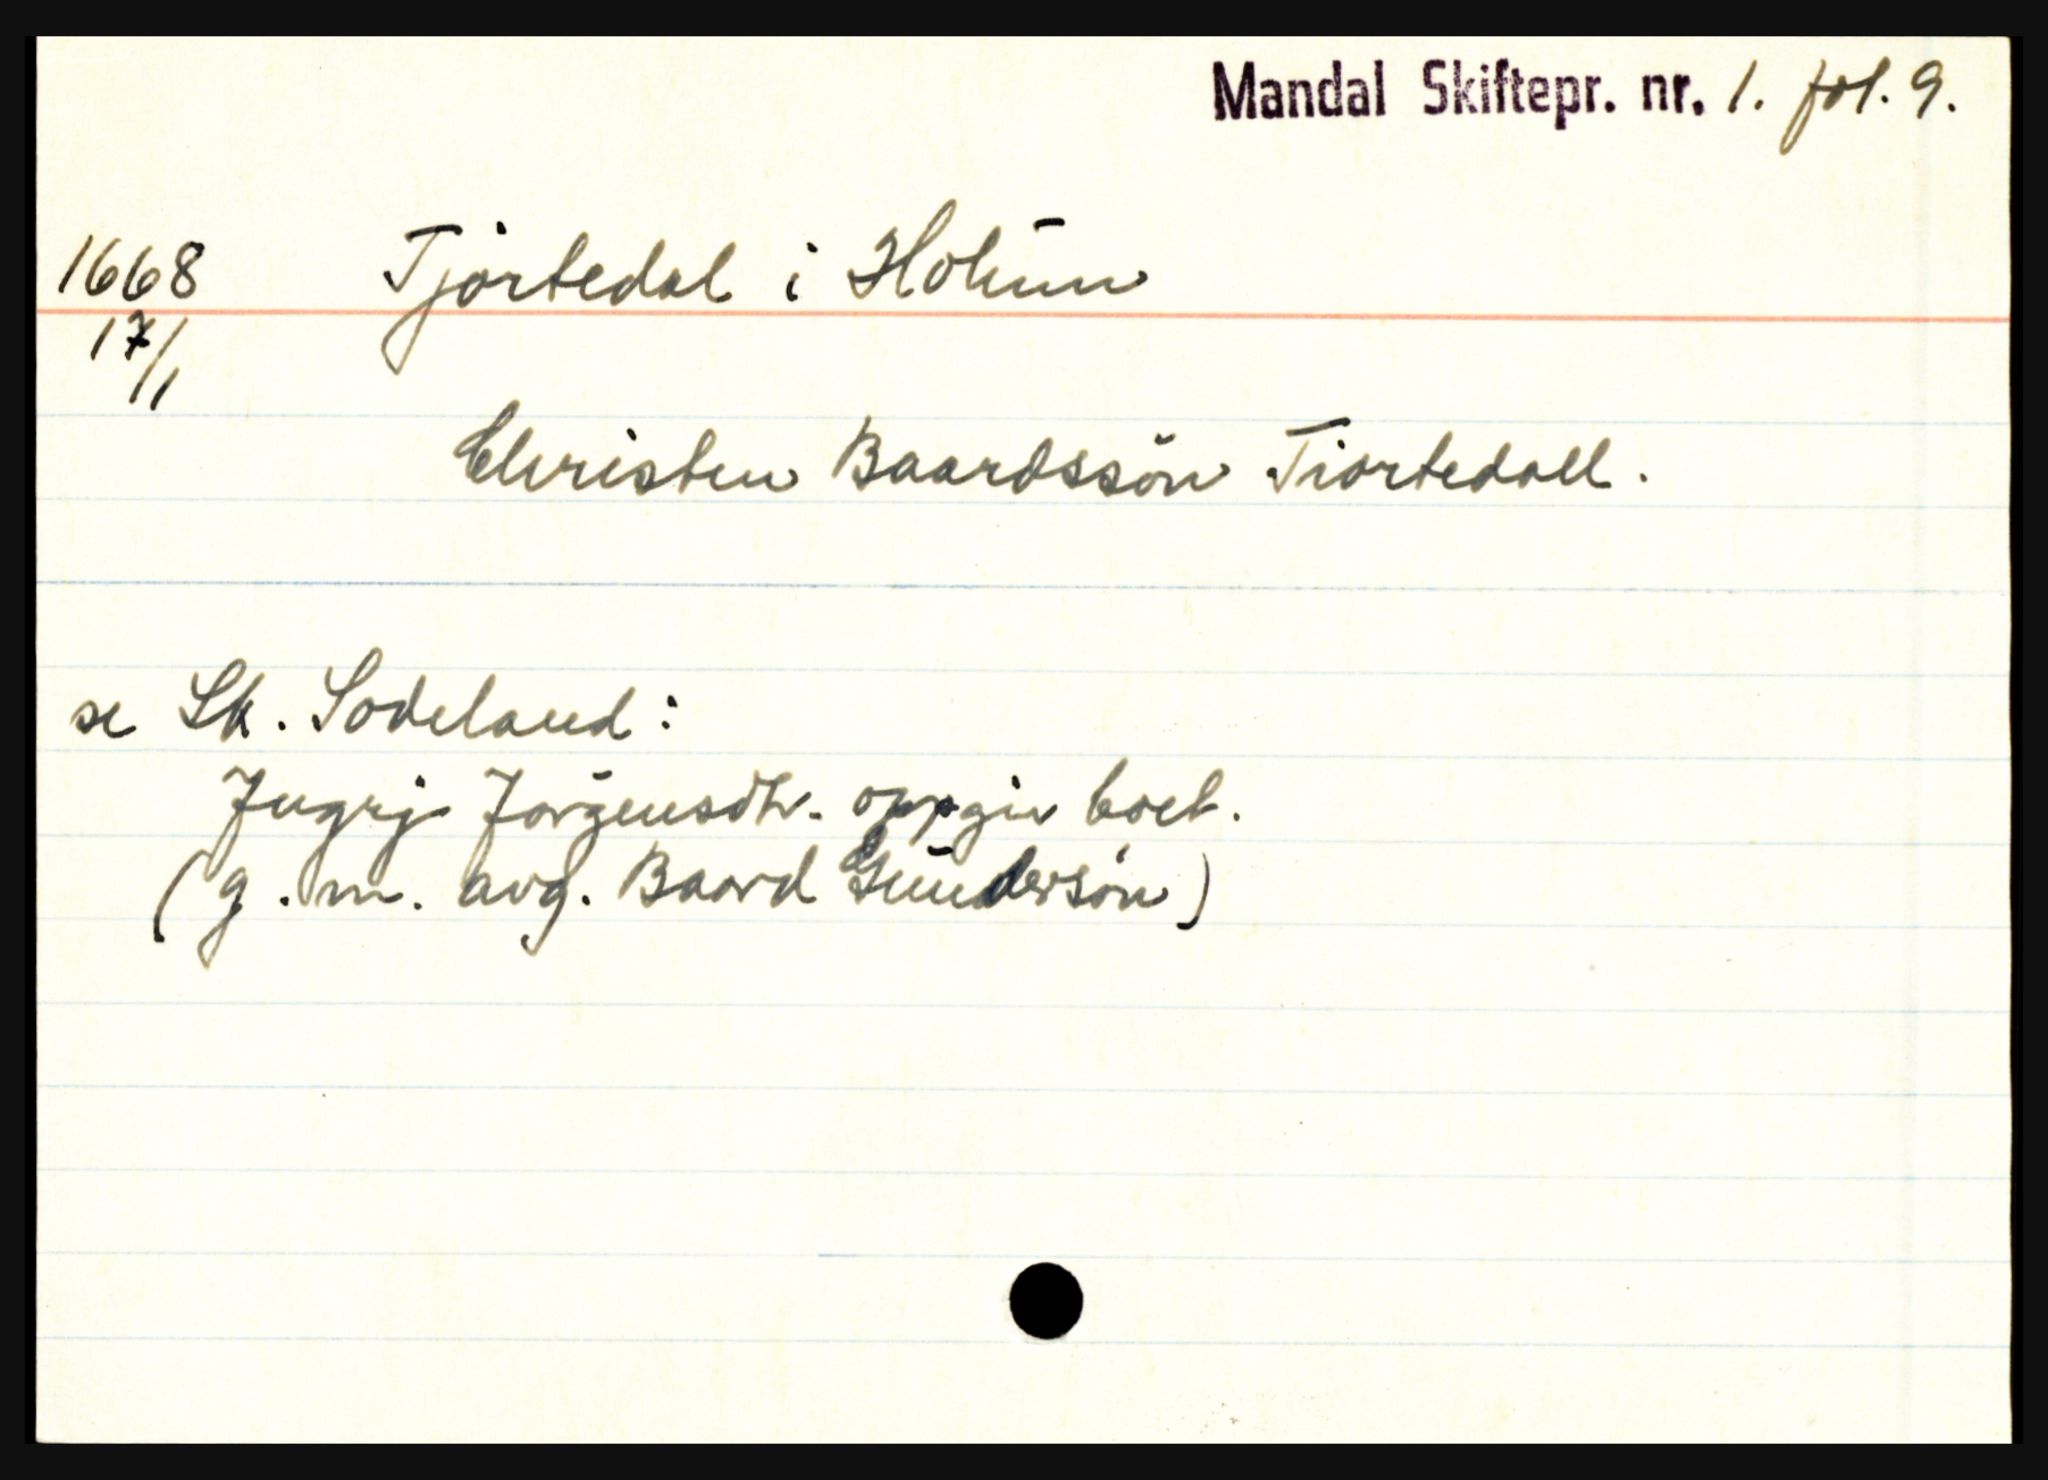 Mandal Skiftepr. nr. 1. fol. 9.
1668 Tjortedal i Holum
17/1
Christen Baardssön Tiortedall.
se Sk. Sodeland:
Ingrj Jörgensdtr. oppgir boet.
(g. m. avg. Baard Gundersön)